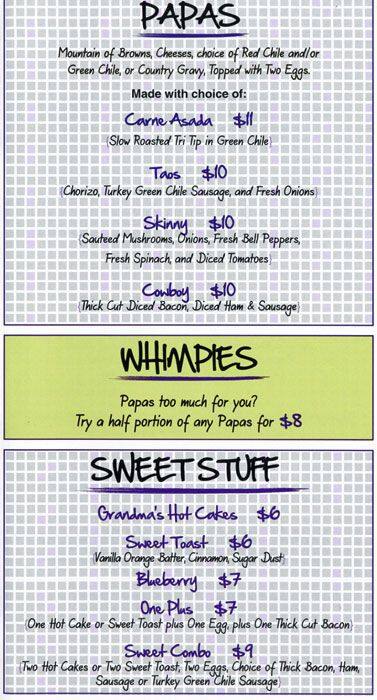 PAPAS
Mountain of Browns, Cheeses, choice of Red Chile and/or
Green Chile, or Country Gravy, Topped with Two Eggs.
Made with choice of:
Carne Asada $11
(Slow Roasted Tri Tip in Green Chile)
Taos $10
(Chorizo, Turkey Green Chile Sausage, and Fresh Onions)
Skinny $10
(Sauteed Mushrooms, Onions, Fresh Bell Peppers,
Fresh Spinach, and Diced Tomatoes)
Cowboy $10
(Thick Cut Diced Bacon, Diced Ham & Sausage)
WHIMPIES
Papas too much for you?
Try a half portion of any Papas for $8
SWEET STUFF
Grandma's Hot Cakes $6
Sweet Toast $6
(Vanilla Orange Batter, Cinnamon, Sugar Dust)
Blueberry $7
One Plus $7
(One Hot Cake or Sweet Toast plus One Egg, plus One Thick Cut Bacon)
Sweet Combo $9
(Two Hot Cakes or Two Sweet Toast, Two Eggs, Choice of Thick Bacon, Ham,
Sausage or Turkey Green Chile Sausage)